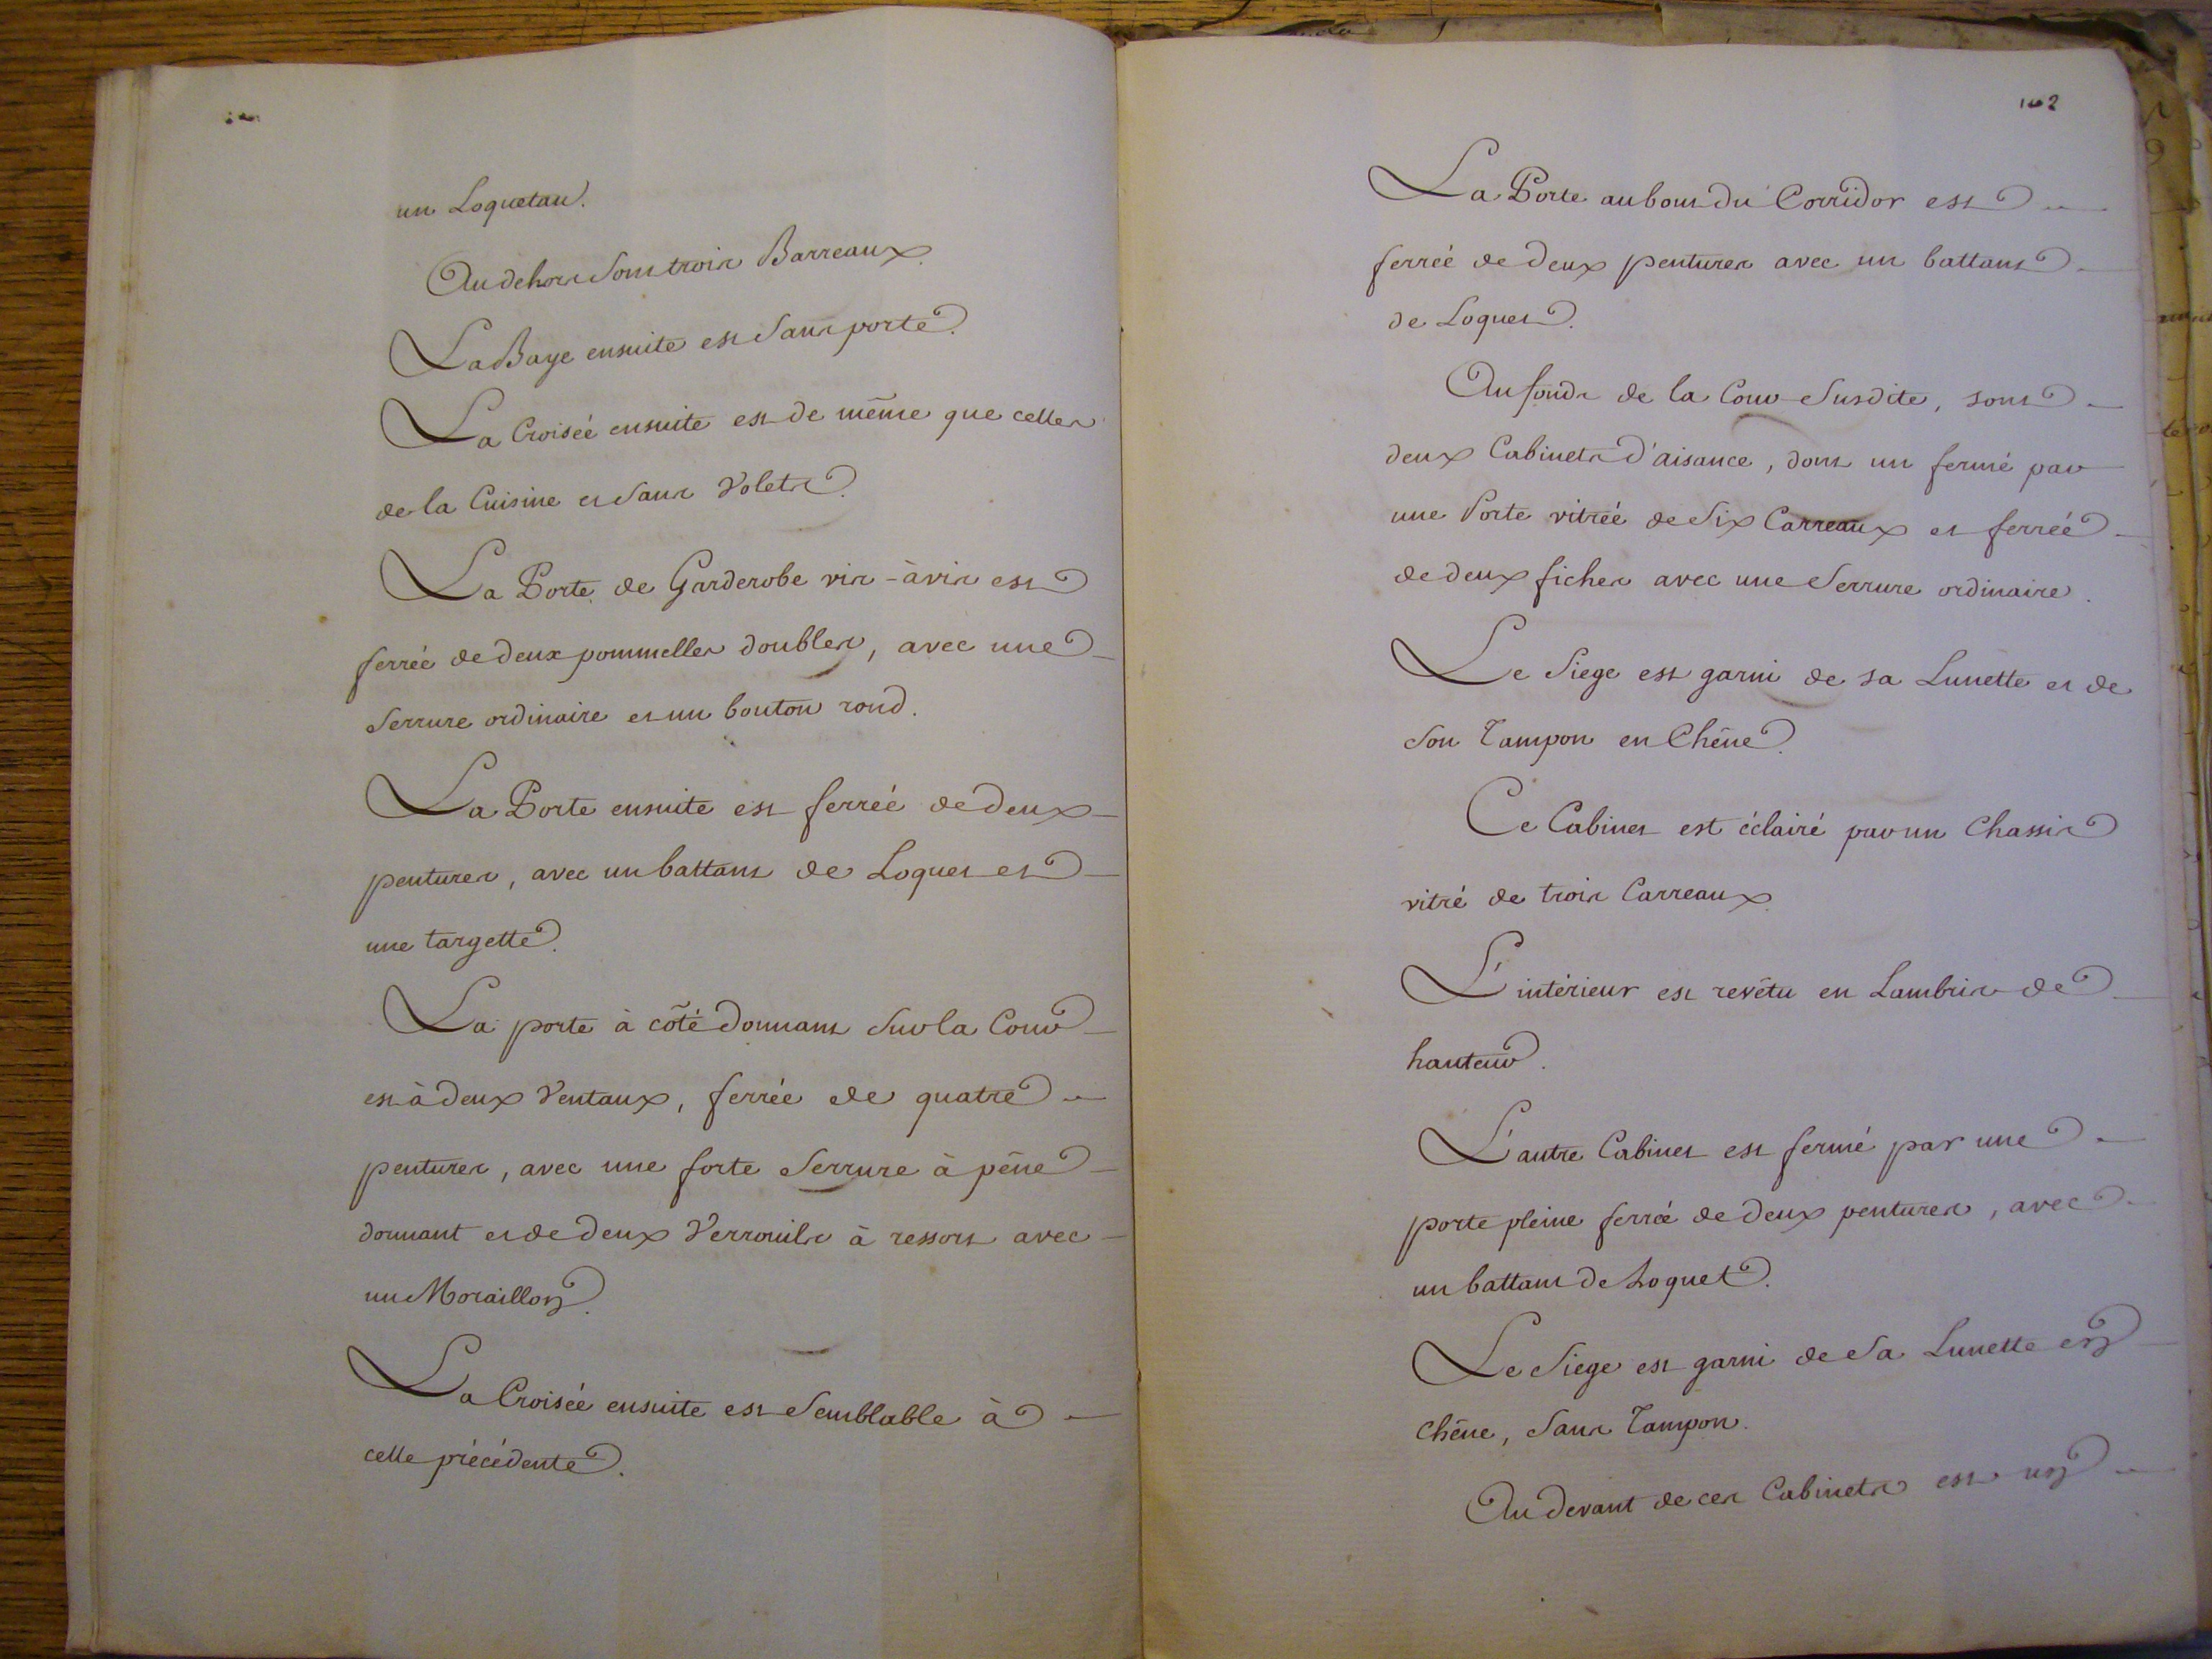 un Loquetau.
Au dehors Sont trois Barreaux.
La Baye ensuite est Sans porte.
La Croisée ensuite est de même que celles
de la Cuisine et Sans Volets.
La Porte de Garderobe vis-à vis est
ferrée de deux pommelles doubles, avec une
Serrure ordinaire et un bouton rond.
La Porte ensuite est ferreé de deux
pentures, avec un battant de Loquet et
une targette.
La porte à côté donnant Sur la Cour
est à deux Ventaux, ferrée de quatre
pentures, avec une forte Serrure à pêne
dormant et de deux Verrouils à ressort avec
un Moraillon.
La Croisée ensuite est Semblable à
celle précédente.
102
La Porte au bout du Corridor est
ferreé de deux pentures avec un battant
de Loquet.
Au fonds de la Cour Susdite, sont
deux Cabinets d'aisance, dont un fermé par
une Porte vitreé de Six Carreaux et ferreé
de deux fiches avec une Serrure ordinaire.
Le Siege est garni de sa Lunette et de
Son Tampon en Chêne.
Ce Cabinet est éclairé par un Chassis
vitré de trois Carreaux.
L'intérieur est revêtu en Lambris de
hauteur.
L'autre Cabinet est fermé par une
porte pleine ferrée de deux pentures, avec
un battant de Loquet.
Le Siege est garni de Sa Lunette en
Chêne, Sans Tampon.
Au devant de ces Cabinets est un